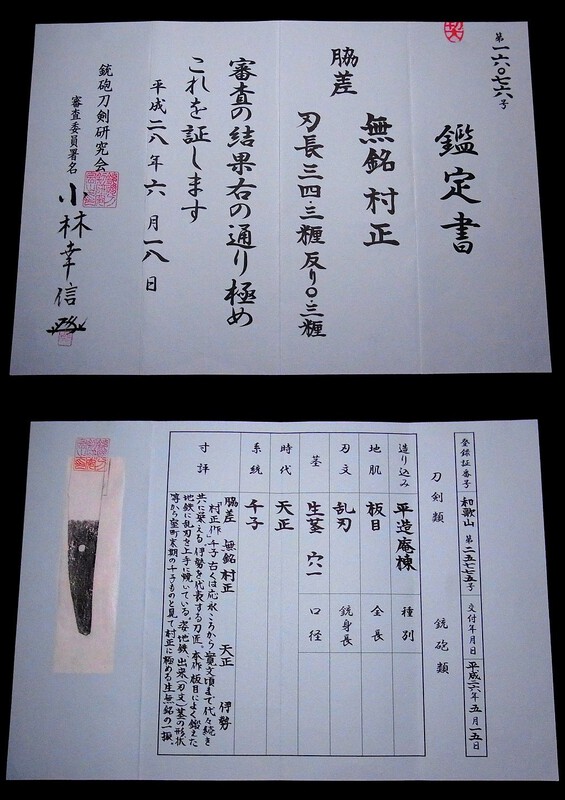 第一六〇七六号
鑑定書
無銘村正
脇差
刃長三四・三糎 反り〇・三糎
審査の結果右の通り極め
これを証します
平成二八年六月一八日
銃砲刀剣研究会
審査委員署名
小林幸信
登録証番号 和歌山 第二五七七五号 交付年月日 平成二六年五月一五日
刀剣類 銃砲類
造り込み 平造庵棟 種別
地肌 板目 全長
刃文 乱刃 銃身長
茎 生茎 穴一 口径
時代 天正
系統 千子
寸評
脇差 無銘村正 天正 伊勢
「村正作」千子 古くは応永ころから寛文頃まで代々続き
共に栄える、伊勢を代表する刀匠。本作、板目によく鍛えた
地鉄に乱刃を上手に焼いている。姿地鉄、出来(刃文)茎の形状
等から室町末期の千子ものと見て村正に極める生無銘の一振。